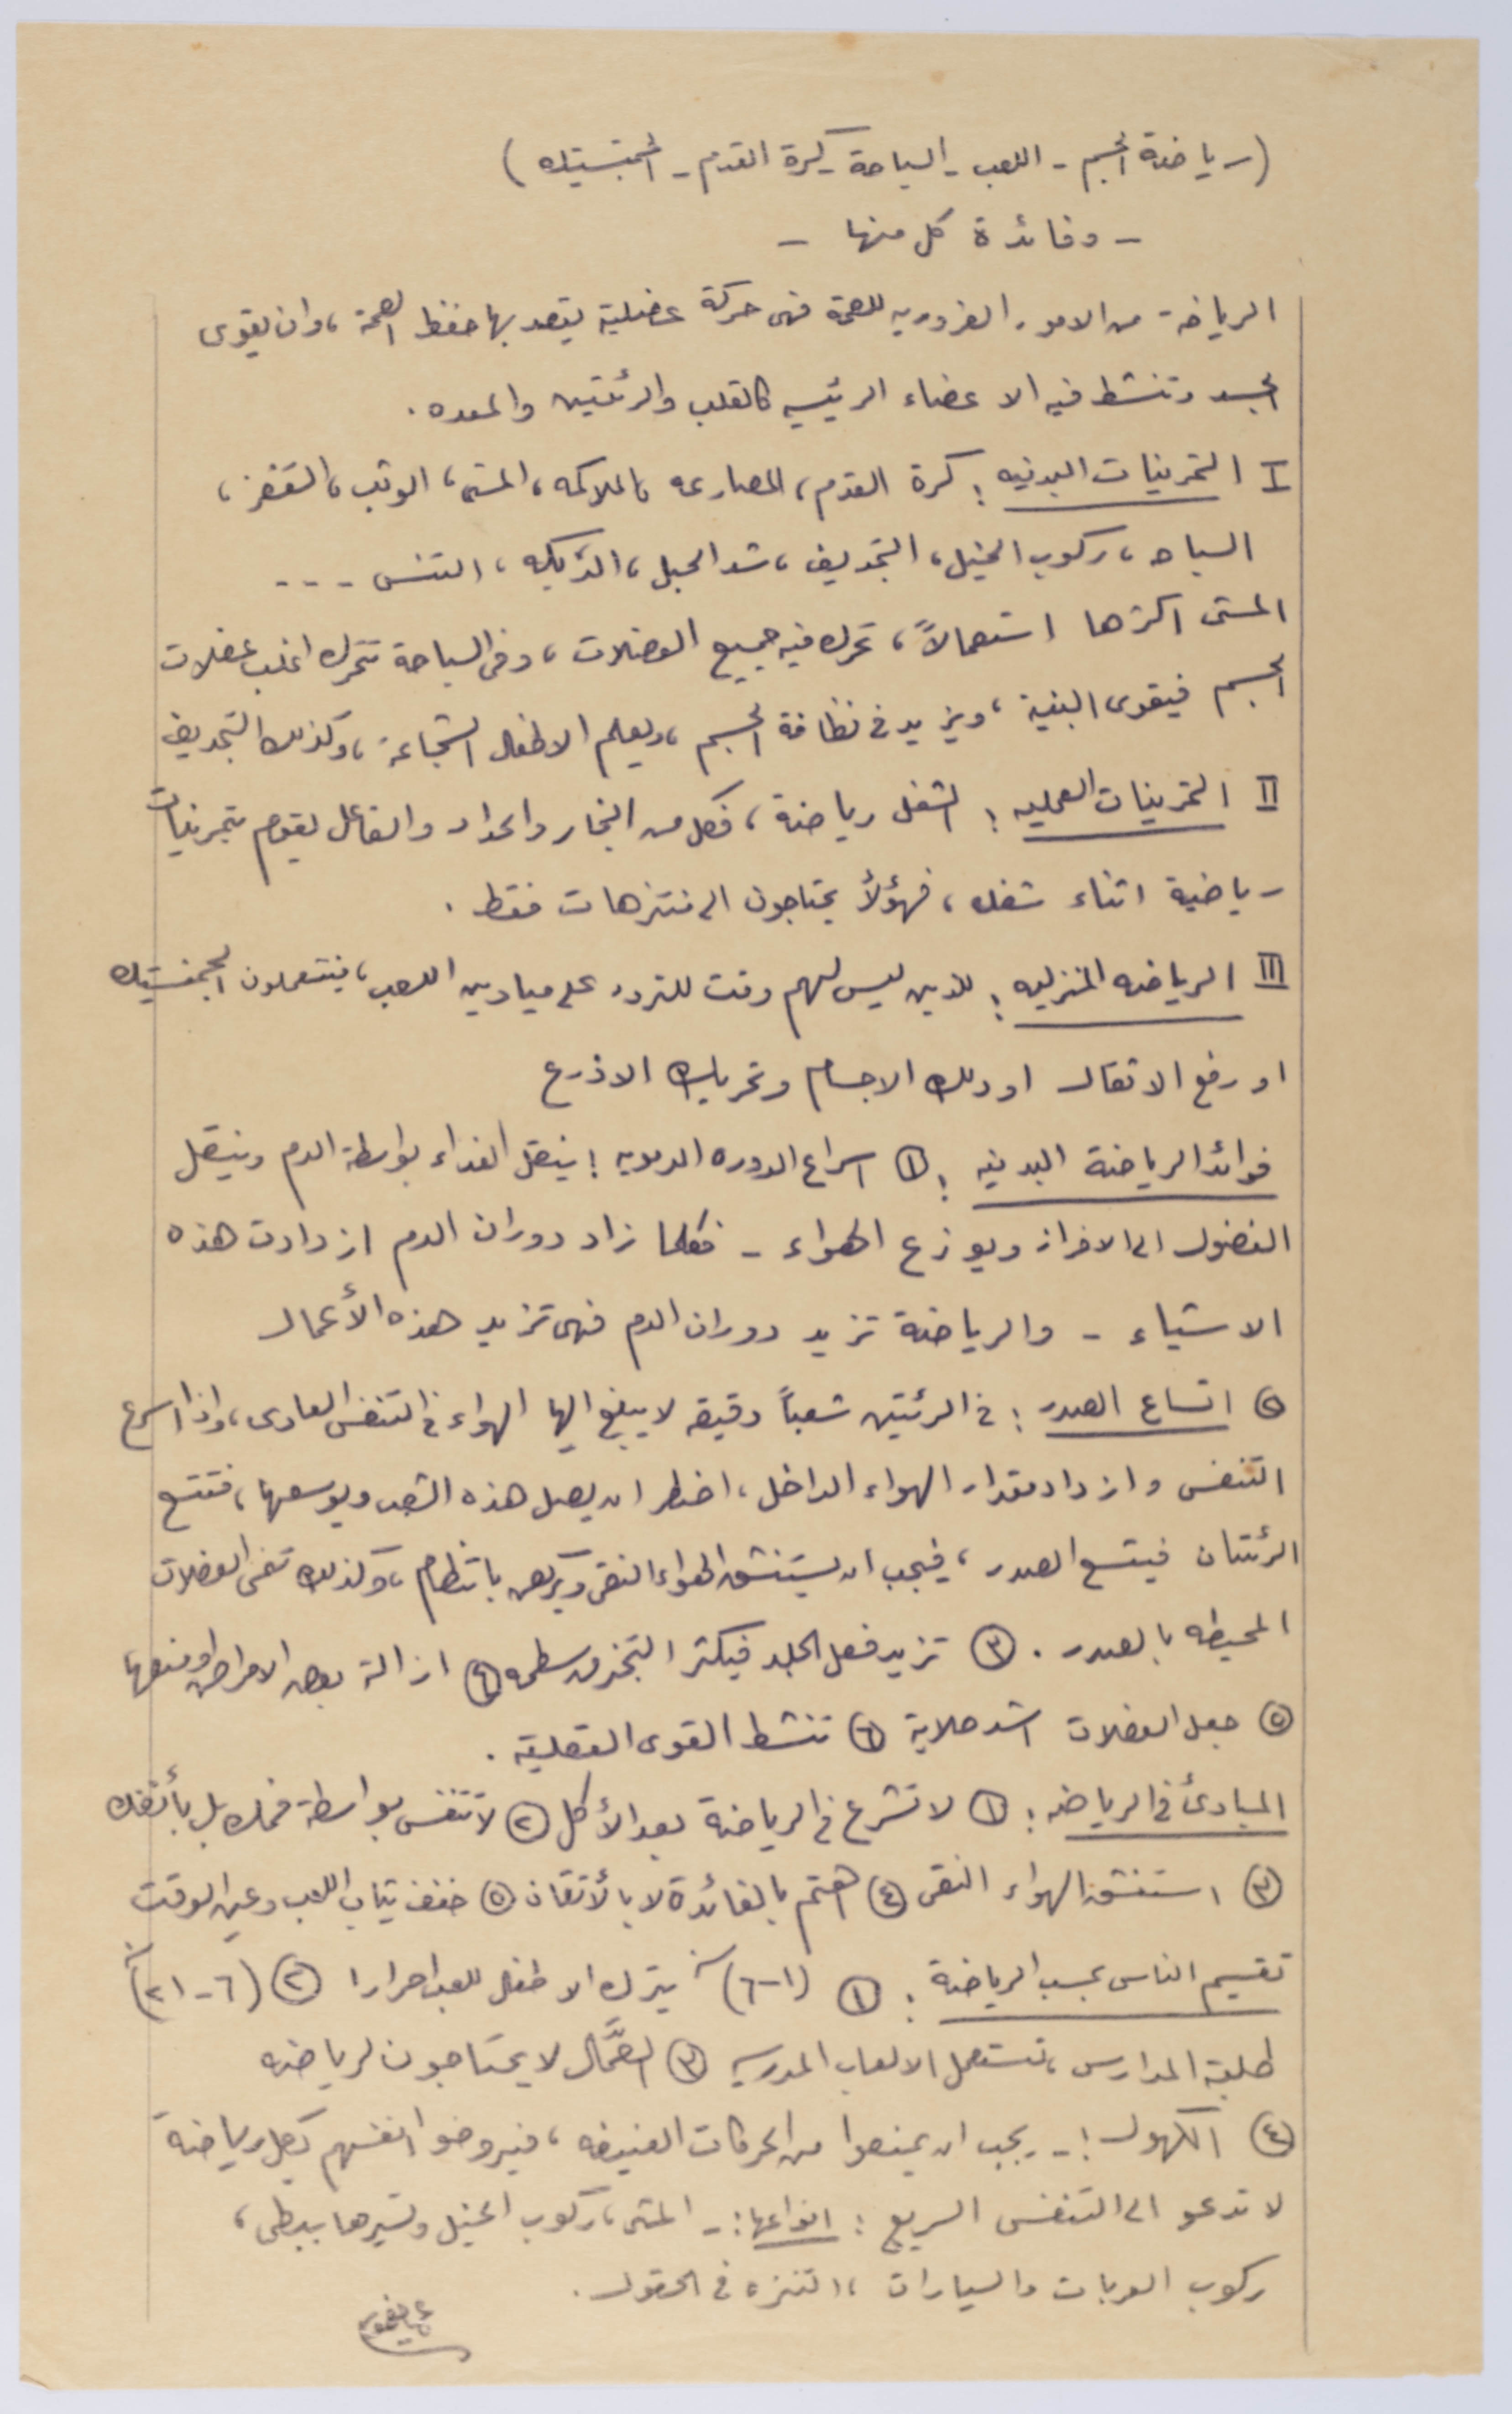 (رياضة الجسم - اللعب - السباحة - كرة القدم - الجمنستيك)
- وفائدة كل منها -
الرياضة من الامور الضروريه للصحة فهى حركة عضلية يقصد بها حفظ الصحة، وان يقوى
الجسد وتنشط فيه الاعضاء الرئيسيه كالقلب والرئتين والمعده.
I التمرينات البدنيه: كرة القدم، المصارعه، الملاكمه، المشى، الوثب، القفز،
السباحه، ركوب الخيل، التجديف، شد الحبل، الدبكه، التنس ---
المشى اكثرها استعمالاً، تحرك فيه جميع العضلات، وفى السباحة تتحرك اغلب عضلات
الجسم فيقوى البنية، ويزيد فى نظافة الجسم، ويعلم الاطفال الشجاعة، وكذلك التجديف
II التمرينات العمليه: الشغل رياضة، فكل من النجار والحداد والفاعل يقوم بتمرينات
رياضية اثناء شغله، فهؤلأ يحتاجون الى منتزهات فقط.
III الرياضه المنزليه: للذين ليس لهم وقت للتردد على ميادين اللعب، فيستعملون الجمنستيك
او رفع الاثقال او دلك الاجسام وتحريك الاذرع
فوائد الرياضة البدنيه: ① اسراع الدوره الدمويه: ينقل الغذاء بواسطة الدم وينقل
الفضول الى الافراز ويوزع الهواء - فكلما زاد دوران الدم ازدادت هذه
الاشياء - والرياضة تزيد دوران الدم فهى تزيد هذه الأعمال
② اتساع الصدر: فى الرئتين شعباً دقيقه لا يبلغ اليها الهواء فى التنفس العادى، واذا اسرع
التنفس وازداد مقدار الهواء الداخل، اضطر ان يصل هذه الشعب ويوسعها، فتتسع
الرئتان فيتسع الصدر، فيجب ان يستنشق الهواء النقى ويركض بانتظام، وكذلك تنمى العضلات
المحيطه بالصدر. ③ تزيد فعل الجلد فيكثر التبخر من سطحه ④ ازالة بعض الامراض ومنعها
⑤ جعل العضلات اشد صلابة ⑥ تنشط القوى العقلية.
المبادئ فى الرياضه: ① لا تشرع فى الرياضة بعد الأكل ② لا تتنفس بواسطة فمك بل بأنفك
③ استنشق الهواء النقى ④ اهتم بالفائدة لا بالأتقان ⑤ خفف ثياب اللعب وعين الوقت
تقسيم الناس بحسب الرياضة: ① (١-٦) يترك الاطفال للعب احرارا ② (٦-٢١)
طلبة المدارس، تستعمل الالعاب المدرسيه ③ العمَّال لا يحتاجون لرياضه
④ الكهول:- يجب ان يمنعوا من الحركات العنيفه، فيروضوا انفسهم بكل رياضة
لا تدعو الى التنفس السريع: انواعها:- المشى، ركوب الخيل وتسيرها ببطئ،
ركوب العربات والسيارات، التنزه فى الحقول.